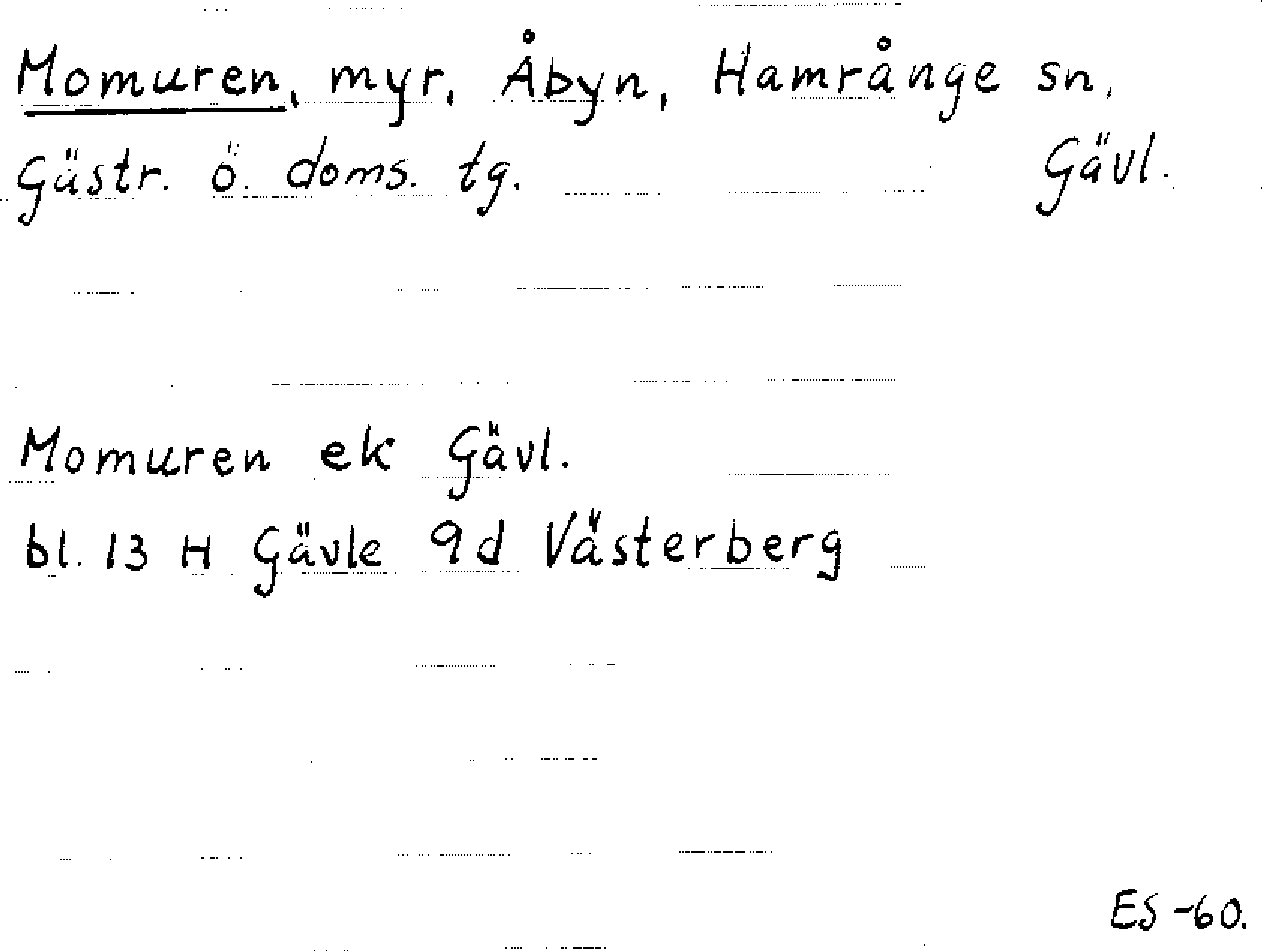 Momuren, myr, Åbyn, Hamrånge sn,
Gästr. ö. doms. tg. Gävl.
Momuren ek Gävl.
bl. 13 H Gävle 9d Västerberg
ES -60.